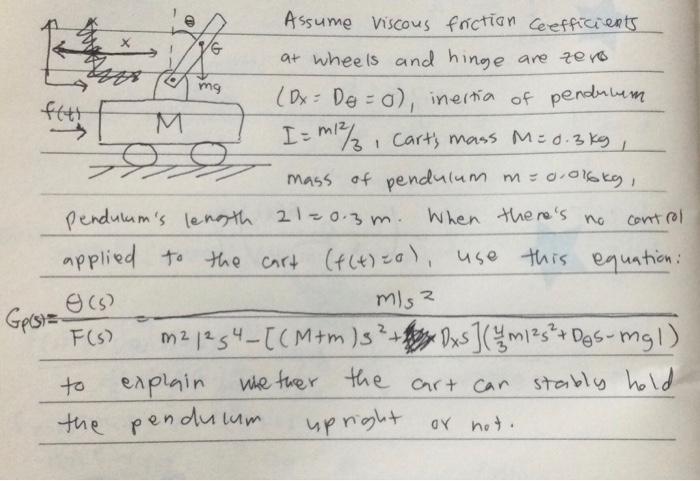 Assume viscous friction coefficients
θ
x
G
at wheels and hinge are zero
mg
(Dx = Dθ = 0), inertia of pendulum
f(t)
M
I = ml²/3, Cart's mass M = 0.3 kg,
mass of pendulum m = kg,
pendulum's length 2l = 0.3 m. When there's no control
applied to the cart (f(t) = 0), use this equation:
Gp(s) = Θ(s)/F(s) = mls²/m²l²s⁴ - [(M+m)s² + Dxs](4/3 ml²s² + Dθs - mgl)
to explain whether the cart can stably hold
the pendulum upright or not.